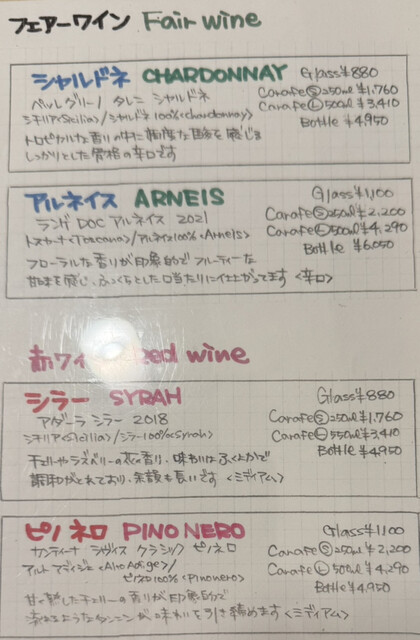 フェアーワイン Fair wine
シャルドネ CHARDONNAY Glass¥880
ペッレグリーノ タレニ シャルドネ Carafe Ⓢ250ml ¥1,760
シチリア<Sicilia>/シャルドネ100%<chardonnay> Carafe Ⓛ500ml ¥3,410
トロピカルな香りの中に 適度な を感じる Bottle ¥4,950
しっかりとした骨格の辛口です
アルネイス ARNEIS Glass¥1,100
ランゲ DOC アルネイス 2021 Carafe Ⓢ250ml ¥2,200
トスカーナ<Toscana>/アルネイス100%<Arneis> Carafe Ⓛ500ml ¥4,290
フローラルな香りが印象的で フルーティーな Bottle ¥6,050
甘味を感じ、ふっくらとした口当たりに仕上がってます <辛口>
赤ワイン Red wine
シラー SYRAH Glass¥880
アダーラ シラー 2018 Carafe Ⓢ250ml ¥1,760
シチリア<Sicilia>/シラー100%<syrah> Carafe Ⓛ550ml ¥3,410
チェリーやラズベリーの花の香り、味わいはふくよかで Bottle ¥4950
調和がとれており、余韻も長いです <ミディアム>
ピノ ネロ PINO NERO Glass¥1100
カンティーナ ラヴィス クラシック ピノネロ Carafe Ⓢ250ml ¥2,200
アルト アディジェ<Alto Adige>/ Carafe Ⓛ500ml ¥4,290
ピノネロ100%<Pinonero> Bottle ¥4,950
甘く熟したチェリーの香りが印象的で
ようなタンニンが味わいを引き締めます <ミディアム>